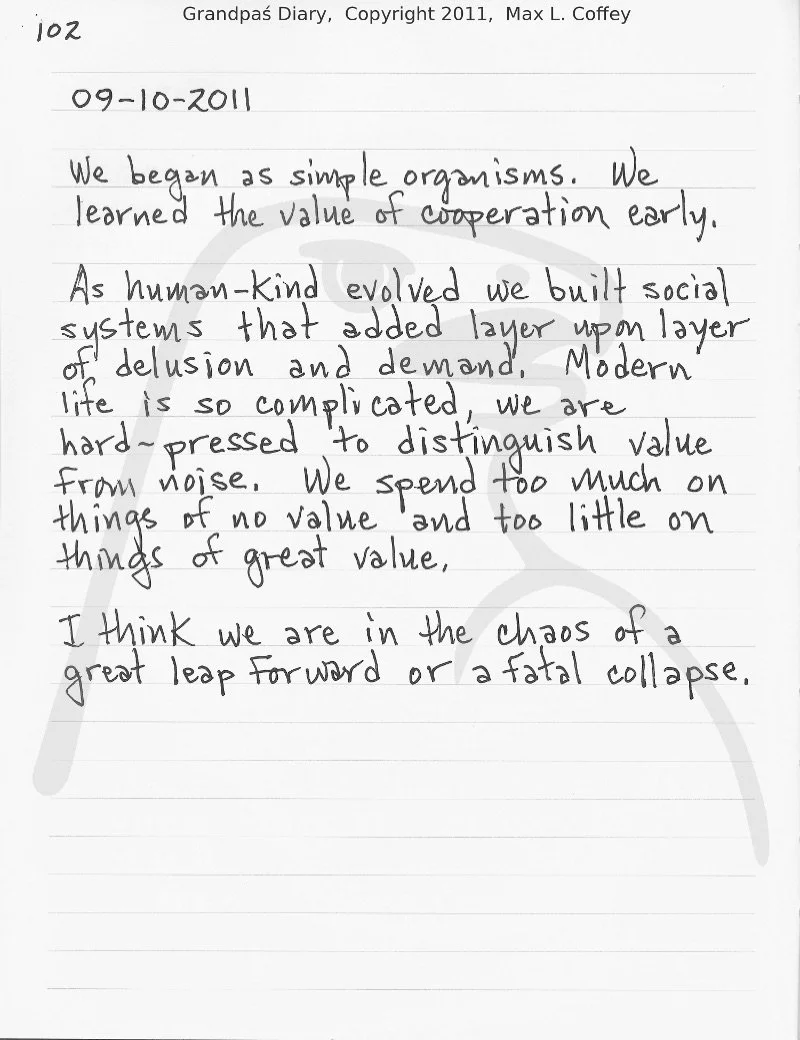 Grandpaś Diary, Copyright 2011, Max L. Coffey
102
09-10-2011
We began as simple organisms. We
learned the value of cooperation early.
As human-kind evolved we built social
systems that added layer upon layer
of delusion and demand. Modern
life is so complicated, we are
hard-pressed to distinguish value
from noise. We spend too much on
things of no value and too little on
things of great value.
I think we are in the chaos of a
great leap forward or a fatal collapse.